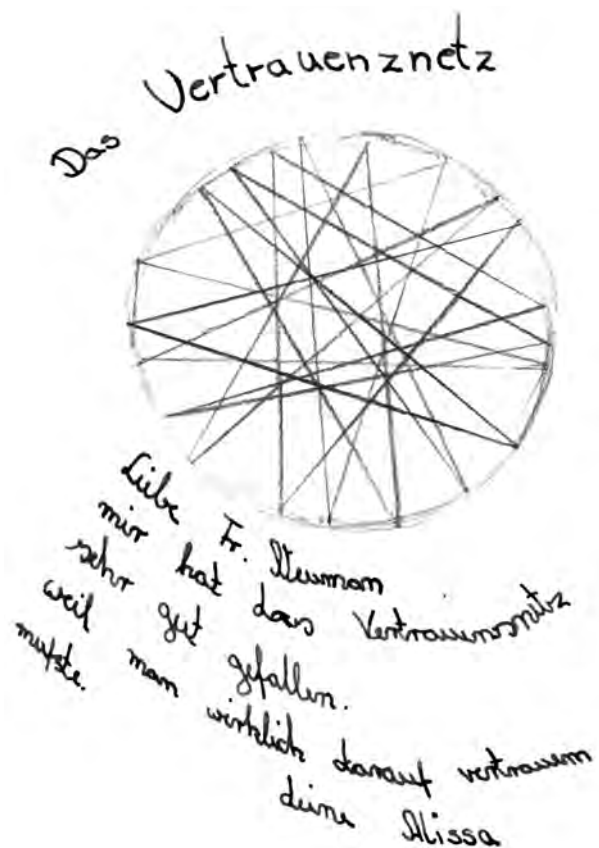 Das Vertrauenznetz
Liebe Fr. Neuman
mir hat das Vertrauensnetz
sehr gut gefallen.
weil man wirklich darauf vertrauen
mußte.
deine Alissa